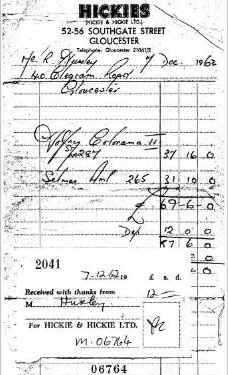 HICKIES
(HICKIE & HICKIE LTD.)
52-56 SOUTHGATE STREET
GLOUCESTER
Telephone: Gloucester
Mr R. Huxley 7 Dec. 1962
40 Road
Gloucester
Colorama II
37 16 0
Selmer 265 31 10 0
£ 69 6 0
Dep 12 0 0
57 6 0
2041
7-12-62 19 £ s. d.
Received with thanks from 12 —
M Huxley
For HICKIE & HICKIE LTD.
M. 06764
06764